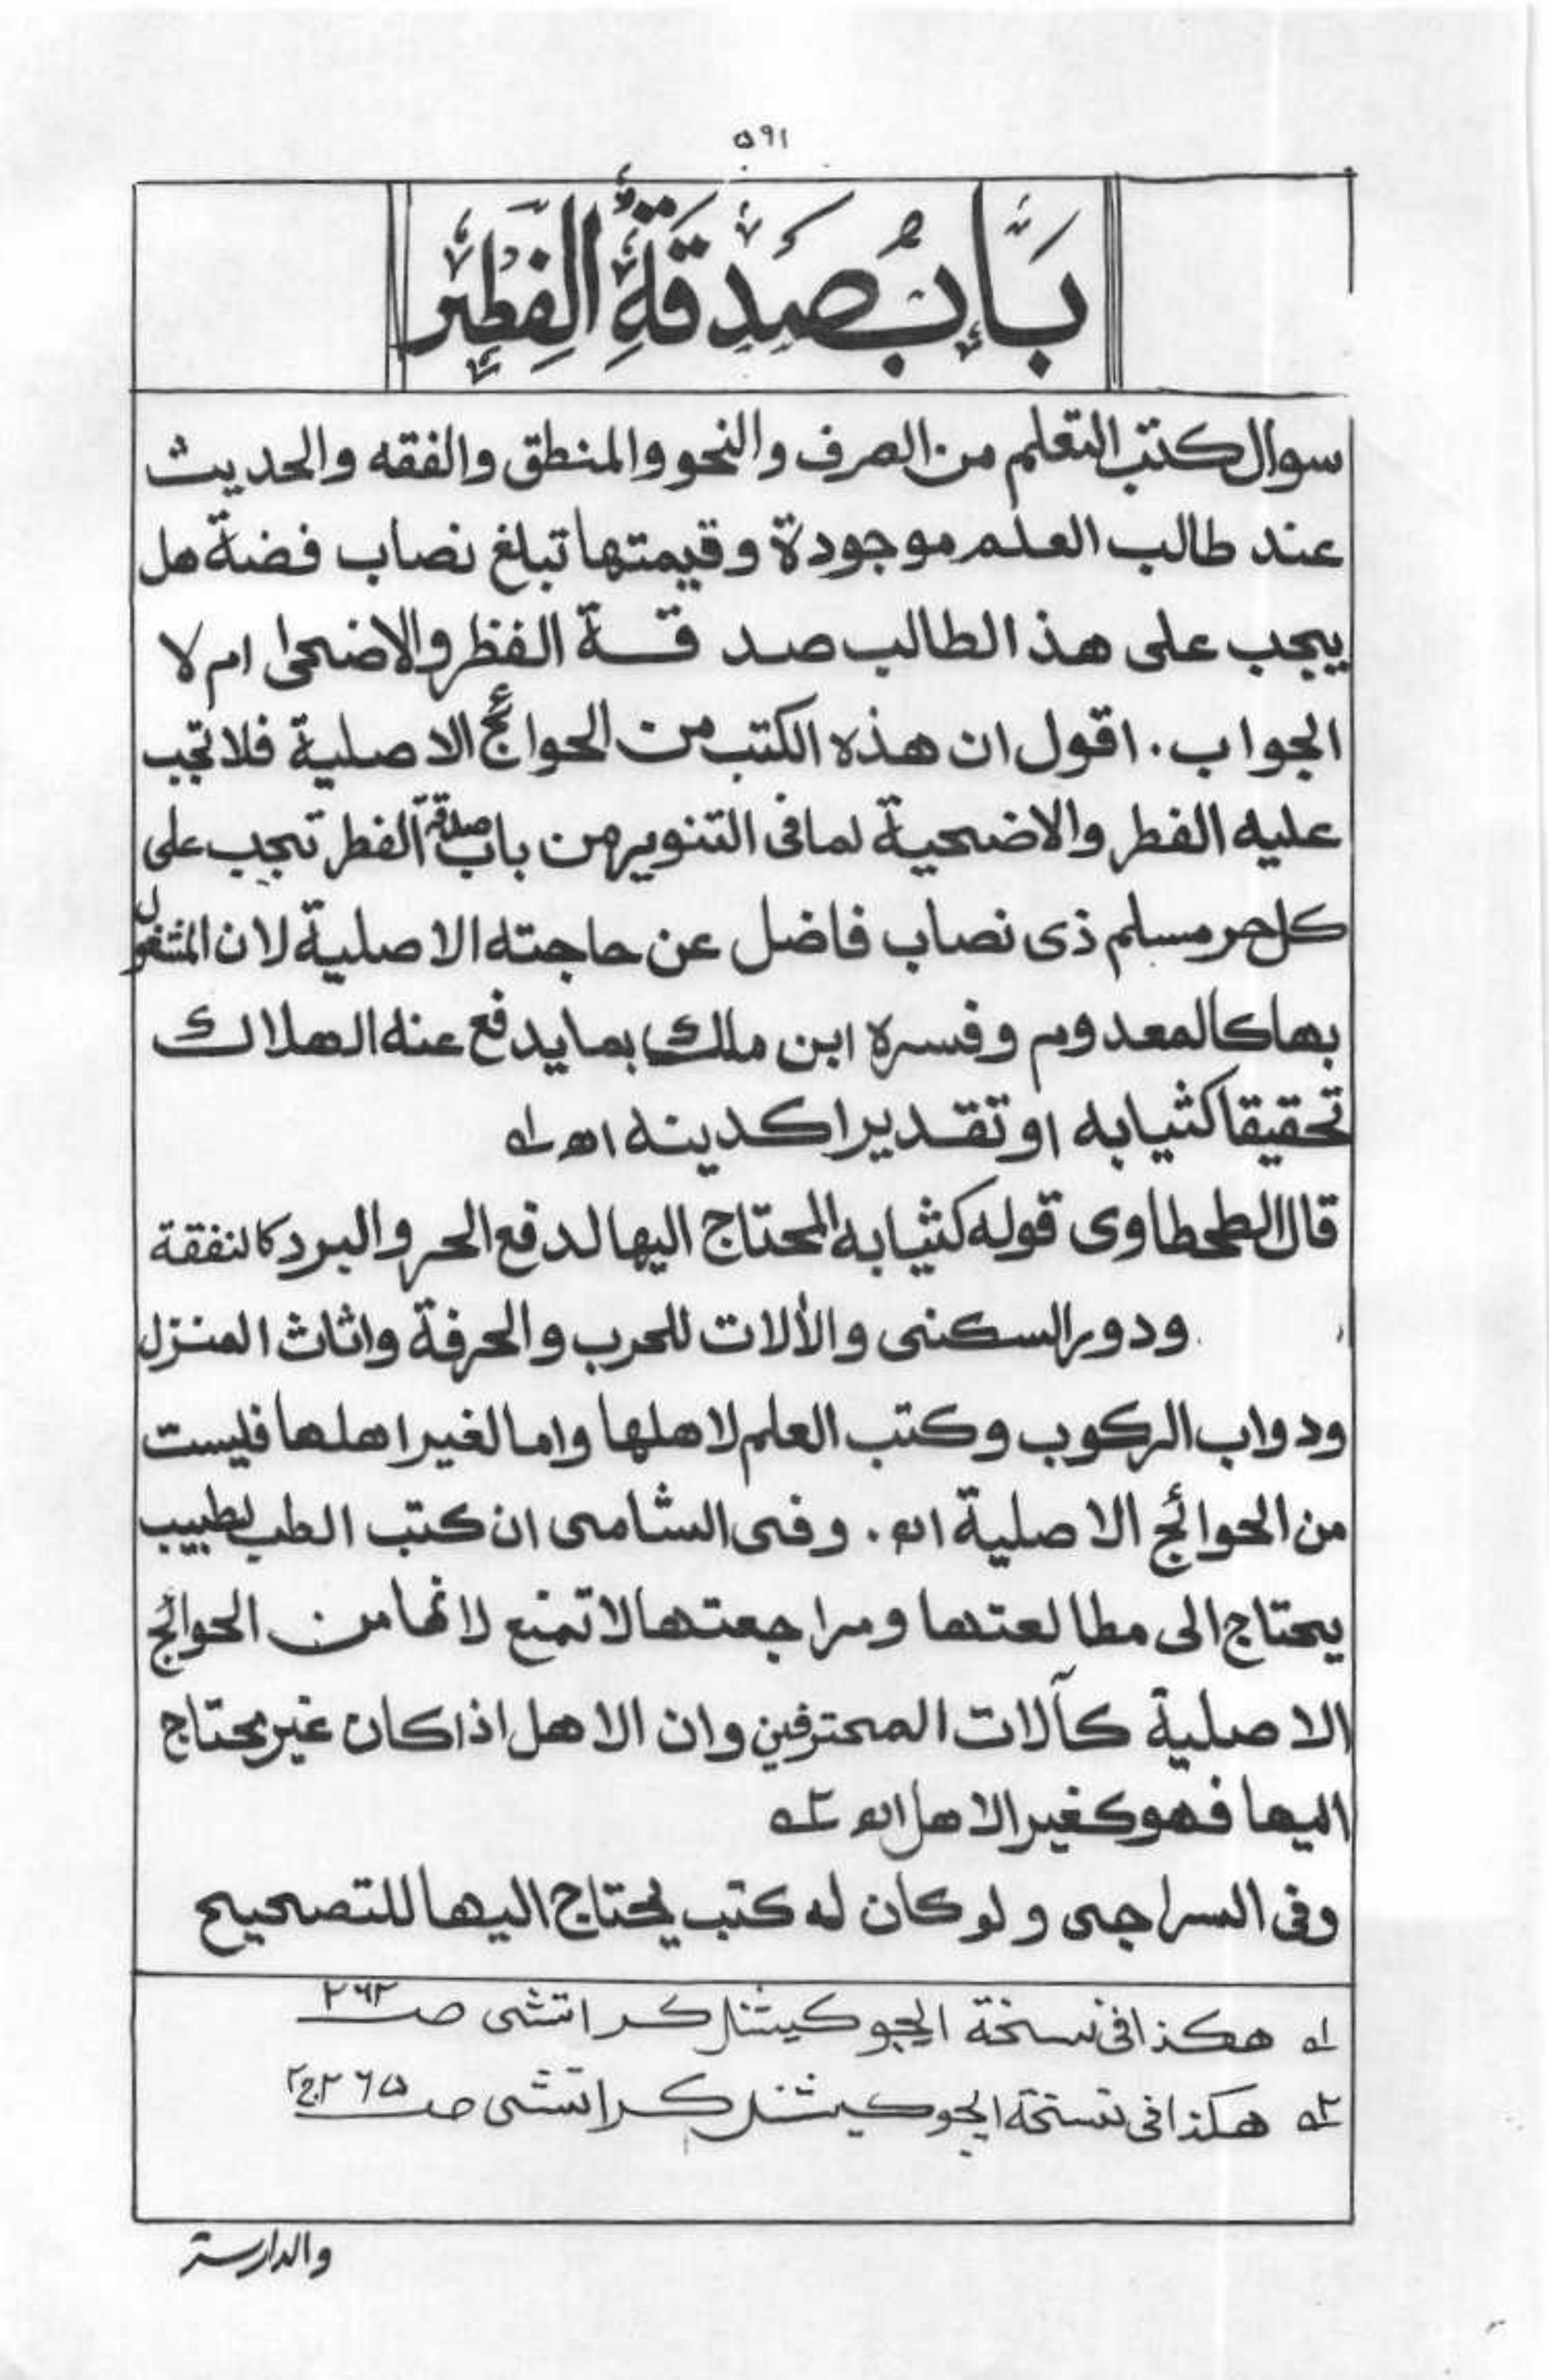 ۵۹۱
بَابُ صَدَقَةِ الْفِطْرِ
سوال كتب التعلم من الصرف والنحو والمنطق والفقه والحديث
عند طالب العلم موجودة وقيمتها تبلغ نصاب فضة هل
يجب على هذ الطالب صدقة الفظر والاضحى ام لا
الجواب. اقول ان هذه الكتب من الحوائج الاصلية فلا تجب
عليه الفطر والاضحية لما فى التنوير من باب صدقة الفطر تجب على
كل حر مسلم ذى نصاب فاضل عن حاجته الاصلية لان المشغول
بها كالمعدوم وفسره ابن ملك بما يدفع عنه الهلاك
تحقيقا كثيابه او تقديرا كدينه اھ ؎۱
قال الطحطاوى قوله كثيابه المحتاج اليها لدفع الحر والبرد كالنفقة
ودور السكنى والألات للحرب والحرفة واثاث المنزل
ودواب الركوب وكتب العلم لاهلها واما لغير اهلها فليست
من الحوائج الاصلية اھ. وفى الشامى ان كتب الطب لطبيب
يحتاج الى مطالعتها ومراجعتها لا تمنع لانها من الحوائج
الاصلية كآلات المحترفين وان الاهل اذا كان غير محتاج
اليها فهو كغير الاهل اھ ؎۲
وفى السراجى ولو كان له كتب يحتاج اليها للتصحيح
؎۱ هكذا فى نسخة ايجوكيشنل كراتشى صـ ۲۶۲
؎۲ هكذا فى نسخة ايجوكيشنل كراتشى صـ ۲۶۵ ج۲
والدارسة